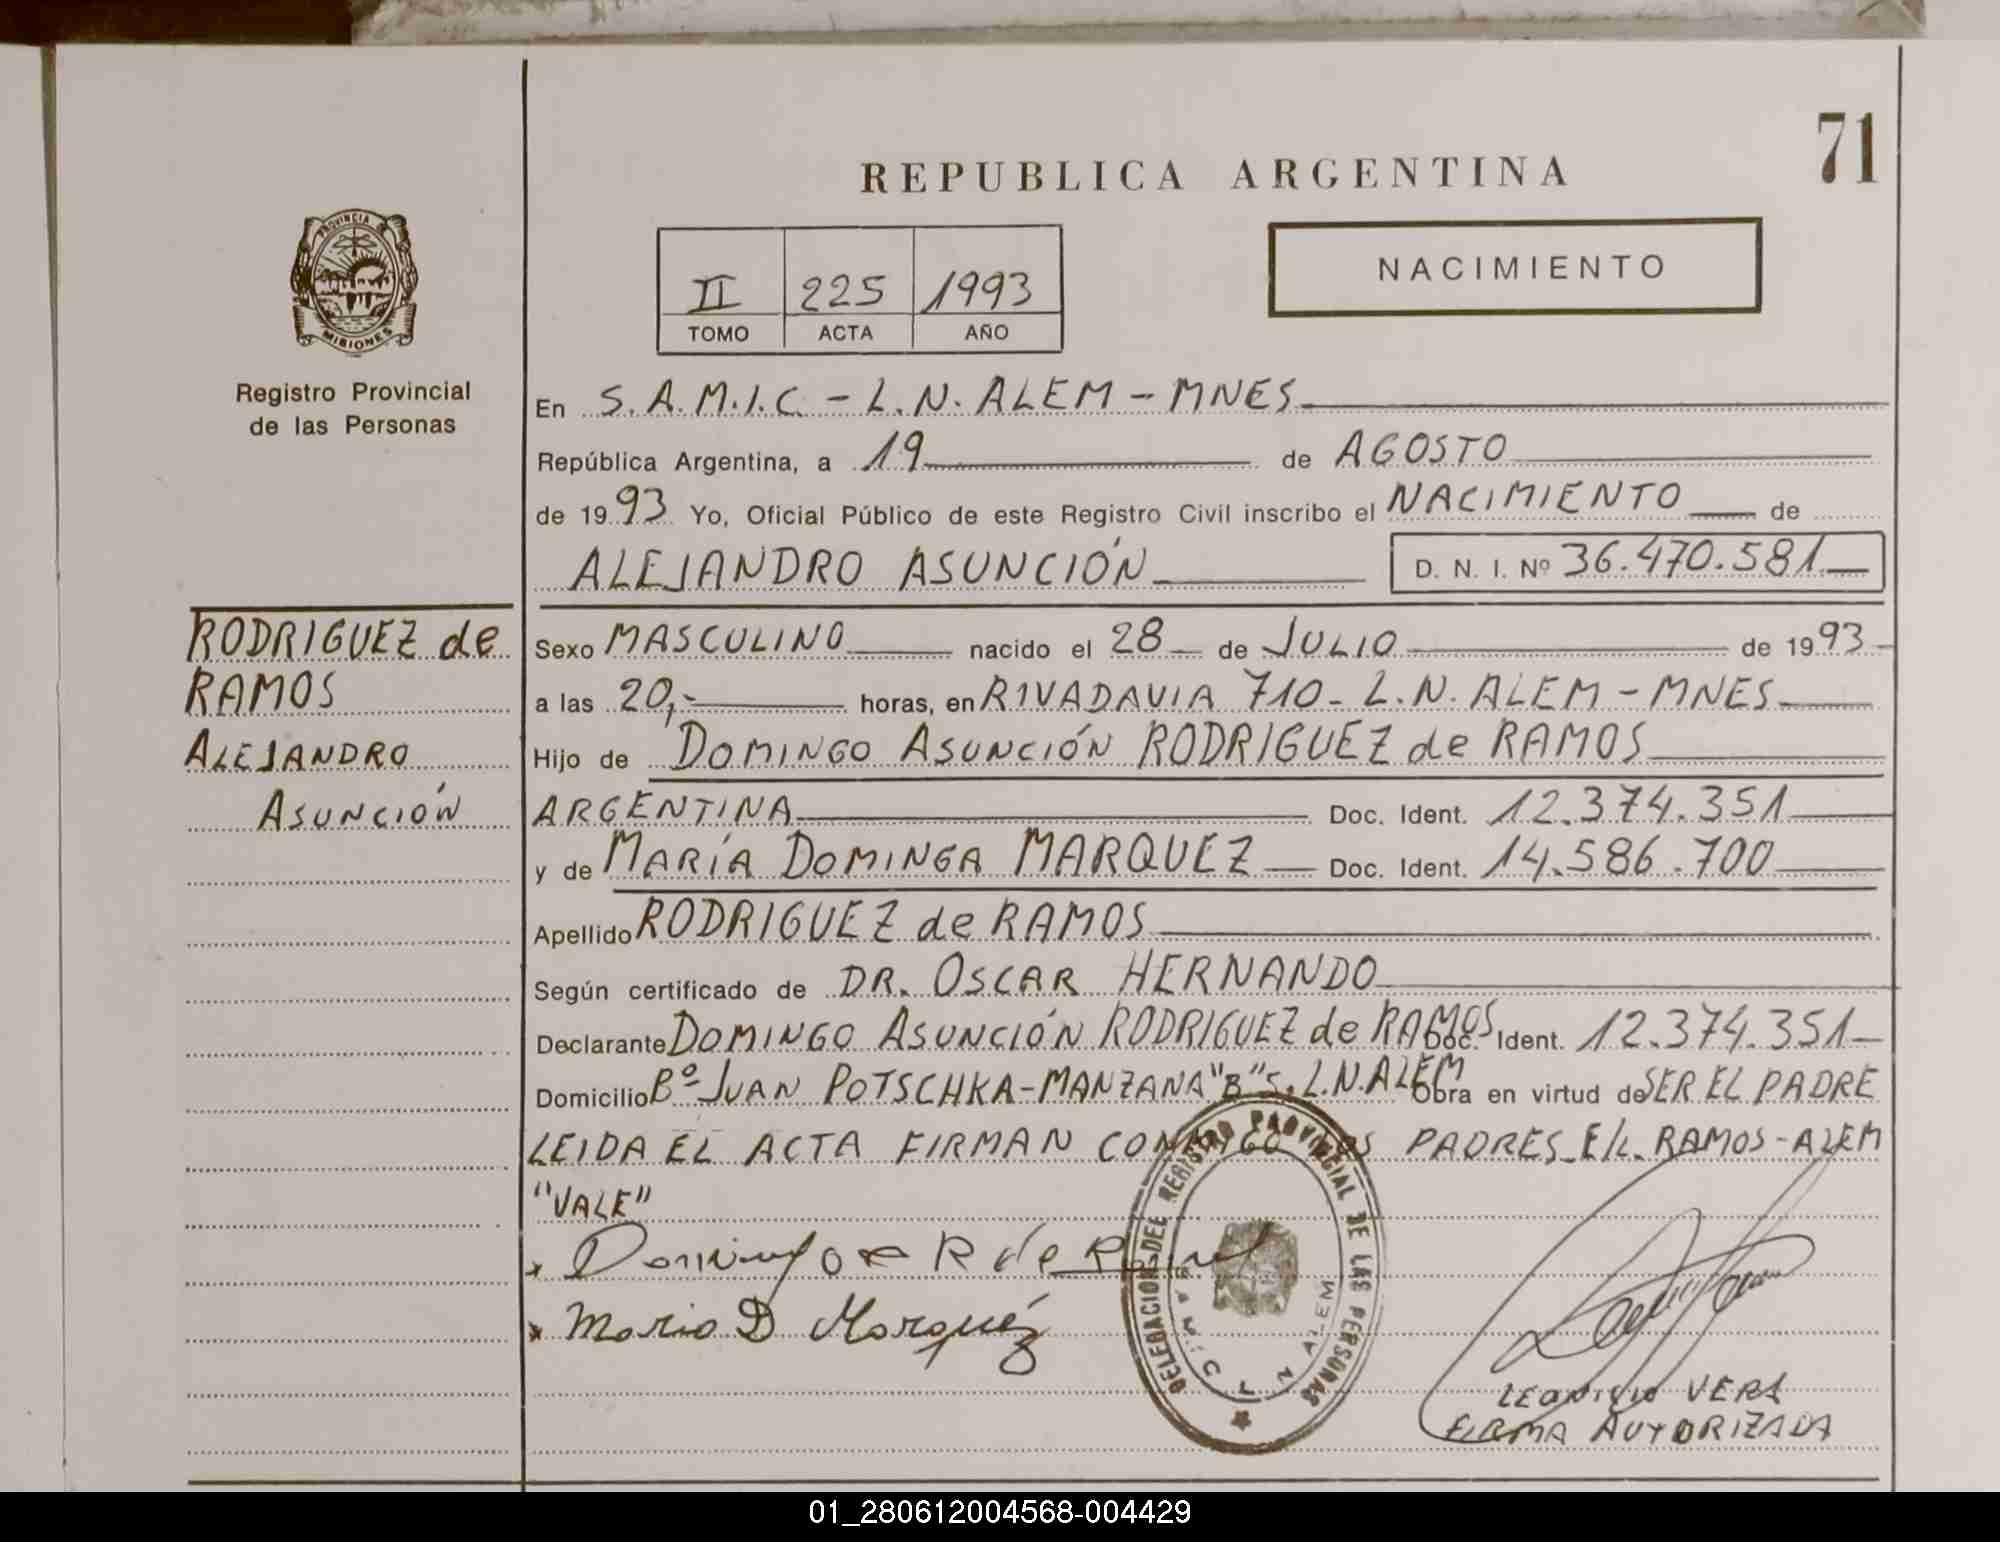 71
REPUBLICA ARGENTINA
PROVINCIA
MISIONES
Registro Provincial
de las Personas
II 225 1993
TOMO ACTA AÑO
NACIMIENTO
En S.A.M.I.C. - L.N. ALEM - MNES
República Argentina, a 19 de AGOSTO
de 1993 Yo, Oficial Público de este Registro Civil inscribo el NACIMIENTO de
ALEJANDRO ASUNCIÓN D. N. I. Nº 36.470.581
RODRIGUEZ de
RAMOS
ALEJANDRO
ASUNCIÓN
Sexo MASCULINO nacido el 28 de JULIO de 1993
a las 20,- horas, en RIVADAVIA 710 - L.N. ALEM - MNES
Hijo de DOMINGO ASUNCIÓN RODRIGUEZ de RAMOS
ARGENTINA Doc. Ident. 12.374.351
y de MARÍA DOMINGA MARQUEZ Doc. Ident. 14.586.700
Apellido RODRIGUEZ de RAMOS
Según certificado de DR. OSCAR HERNANDO
Declarante DOMINGO ASUNCIÓN RODRIGUEZ de RAMOS Doc. Ident. 12.374.351
Domicilio Bº JUAN POTSCHKA - MANZANA "B" S. L.N. ALEM Obra en virtud de SER EL PADRE
LEIDA EL ACTA FIRMAN CONMIGO LOS PADRES. E/L. RAMOS - ALEM
"VALE"
Domingo R de
Maria D Marquéz
DELEGACION DEL REGISTRO PROVINCIAL DE LAS PERSONAS
L N ALEM
VERA
FIRMA AUTORIZADA
01_280612004568-004429